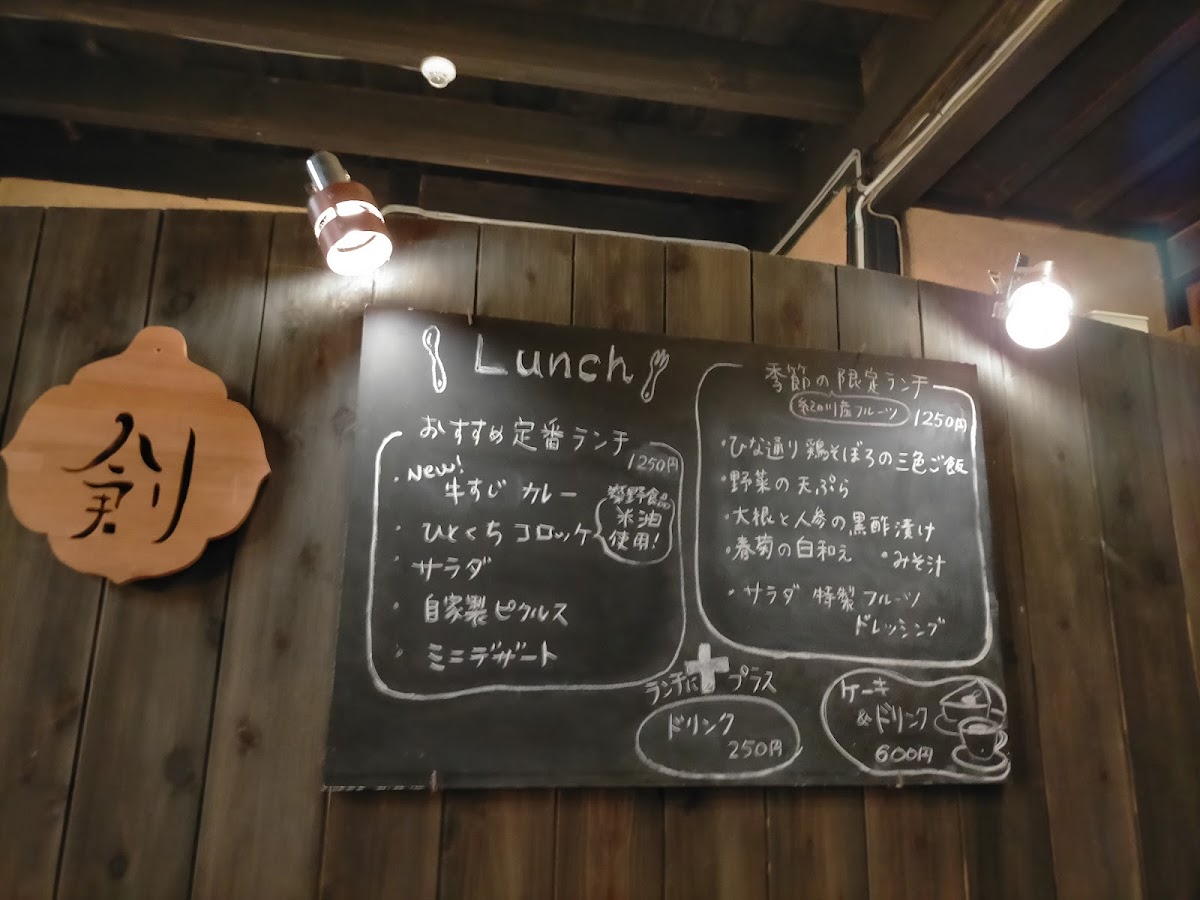 創
Lunch
おすすめ定番ランチ
1250円
・NEW!
牛すじ カレー
・ひとくち コロッケ
築野食品
米油
使用!
・サラダ
・自家製ピクルス
・ミニデザート
季節の限定ランチ
紀の川産フルーツ
1250円
・ひな通り 鶏そぼろの三色ご飯
・野菜の天ぷら
・大根と人参の黒酢漬け
・春菊の白和え ・みそ汁
・サラダ 特製フルーツ
ドレッシング
ランチに+プラス
ドリンク
250円
ケーキ
&ドリンク
600円